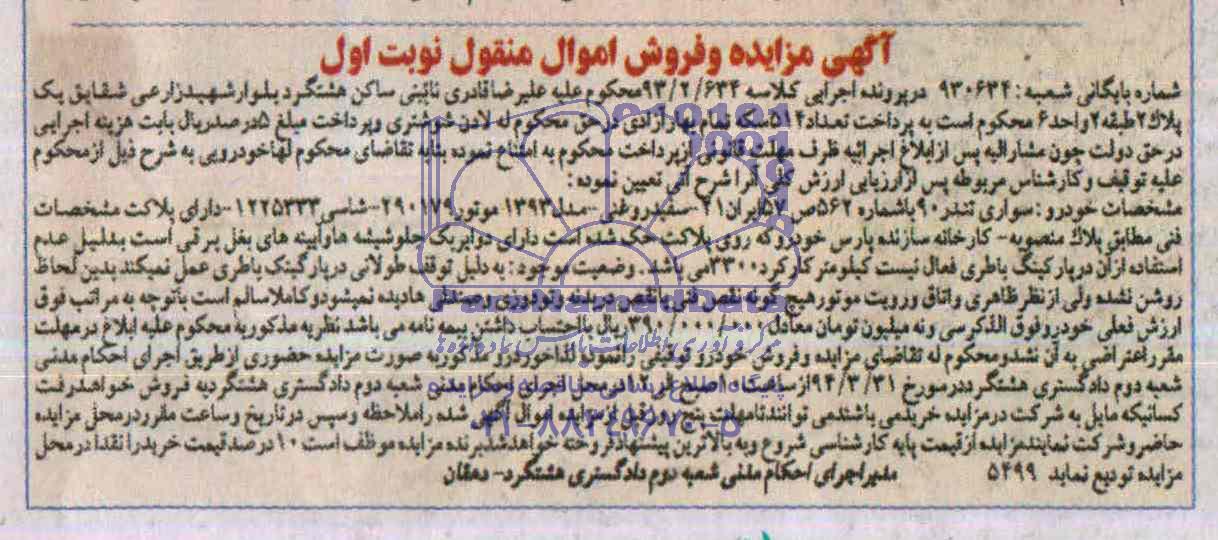 آگهی مزایده وفروش اموال منقول نوبت اول
شماره بایگانی شعبه : ۹۳۰۶۳۴ درپرونده اجرایی کلاسه ۹۳/۲/۶۳۴محکوم علیه علیرضاقادری نائینی ساکن هشتگرد بلوارشهیدزارعی شقایق یک
پلاک۲طبقه۲واحد۶ محکوم است به پرداخت تعداد۵۱۴سکه تمام بهارآزادی درحق محکوم له لادن شوشتری وپرداخت مبلغ ۵درصدریال بابت هزینه اجرایی
درحق دولت چون مشارالیه پس ازابلاغ اجرائیه ظرف مهلت قانونی ازپرداخت محکوم به امتناع نموده بنابه تقاضای محکوم لهاخودرویی به شرح ذیل ازمحکوم
علیه توقیف وکارشناس مربوطه پس ازارزیابی ارزش کلی آنرا شرح آتی تعیین نموده :
مشخصات خودرو : سواری تندر۹۰باشماره ۵۶۲ص۵۷ایران۲۱-سفیدروغنی -مدل۱۳۹۳ موتور۲۹۰۱۷۹-شاسی۱۲۲۵۳۳۳-دارای پلاکت مشخصات
فنی مطابق پلاک منصوبه- کارخانه سازنده پارس خودروکه روی پلاکت حک شده است دارای دوایربک جلوشیشه هاوآیینه های بغل برقی است بدلیل عدم
استفاده ازآن درپارکینگ باطری فعال نیست کیلومترکارکرد۳۳۰۰می باشد. وضعیت موجود : به دلیل توقف طولانی درپارکینک باطری عمل نمیکندبدین لحاظ
روشن نشده ولی ازنظرظاهری واتاق ورویت موتورهیچ گونه نقص فنی یانقص دربدنه وتودوزی وصندلی هادیده نمیشودوکاملاسالم است باتوجه به مراتب فوق
ارزش فعلی خودروفوق الذکرسی ونه میلیون تومان معادل ۳۹۰/۰۰۰/۰۰۰ ریال بااحتساب داشتن بیمه نامه می باشد نظریه مذکوربه محکوم علیه ابلاغ درمهلت
مقرراعتراضی به آن نشدومحکوم له تقاضای مزایده وفروش خودرو توقیفی رانمودو لذاخودرو مذکوربه صورت مزایده حضوری ازطریق اجرای احکام مدنی
شعبه دوم دادگستری هشتگرددرمورخ ۹۴/۳/۳۱ازساعت۱۰صبح الی۱۲درمحل اجرای احکام مدنی شعبه دوم دادگستری هشتگردبه فروش خواهدرفت
کسانیکه مایل به شرکت درمزایده خریدمی باشندمی توانندتامهلت پنج روزقبل ازمزایده اموال آگهی شده راملاحظه وسپس درتاریخ وساعت مقرردرمحل مزایده
حاضروشرکت نمایندمزایده ازقیمت پایه کارشناسی شروع وبه بالاترین پیشنهادفروخته خواهدشدبرنده مزایده موظف است ۱۰درصدقیمت خریدرانقدادرمحل
مزایده تودیع نماید ۵۴۹۹ مدیراجرای احکام مدنی شعبه دوم دادگستری هشتگرد- دهقان
ParsNamadData
پایگاه اطلاع رسانی مناقصه و مزایده
۰۲۱-۸۸۳۴۹۶۷۰-۵